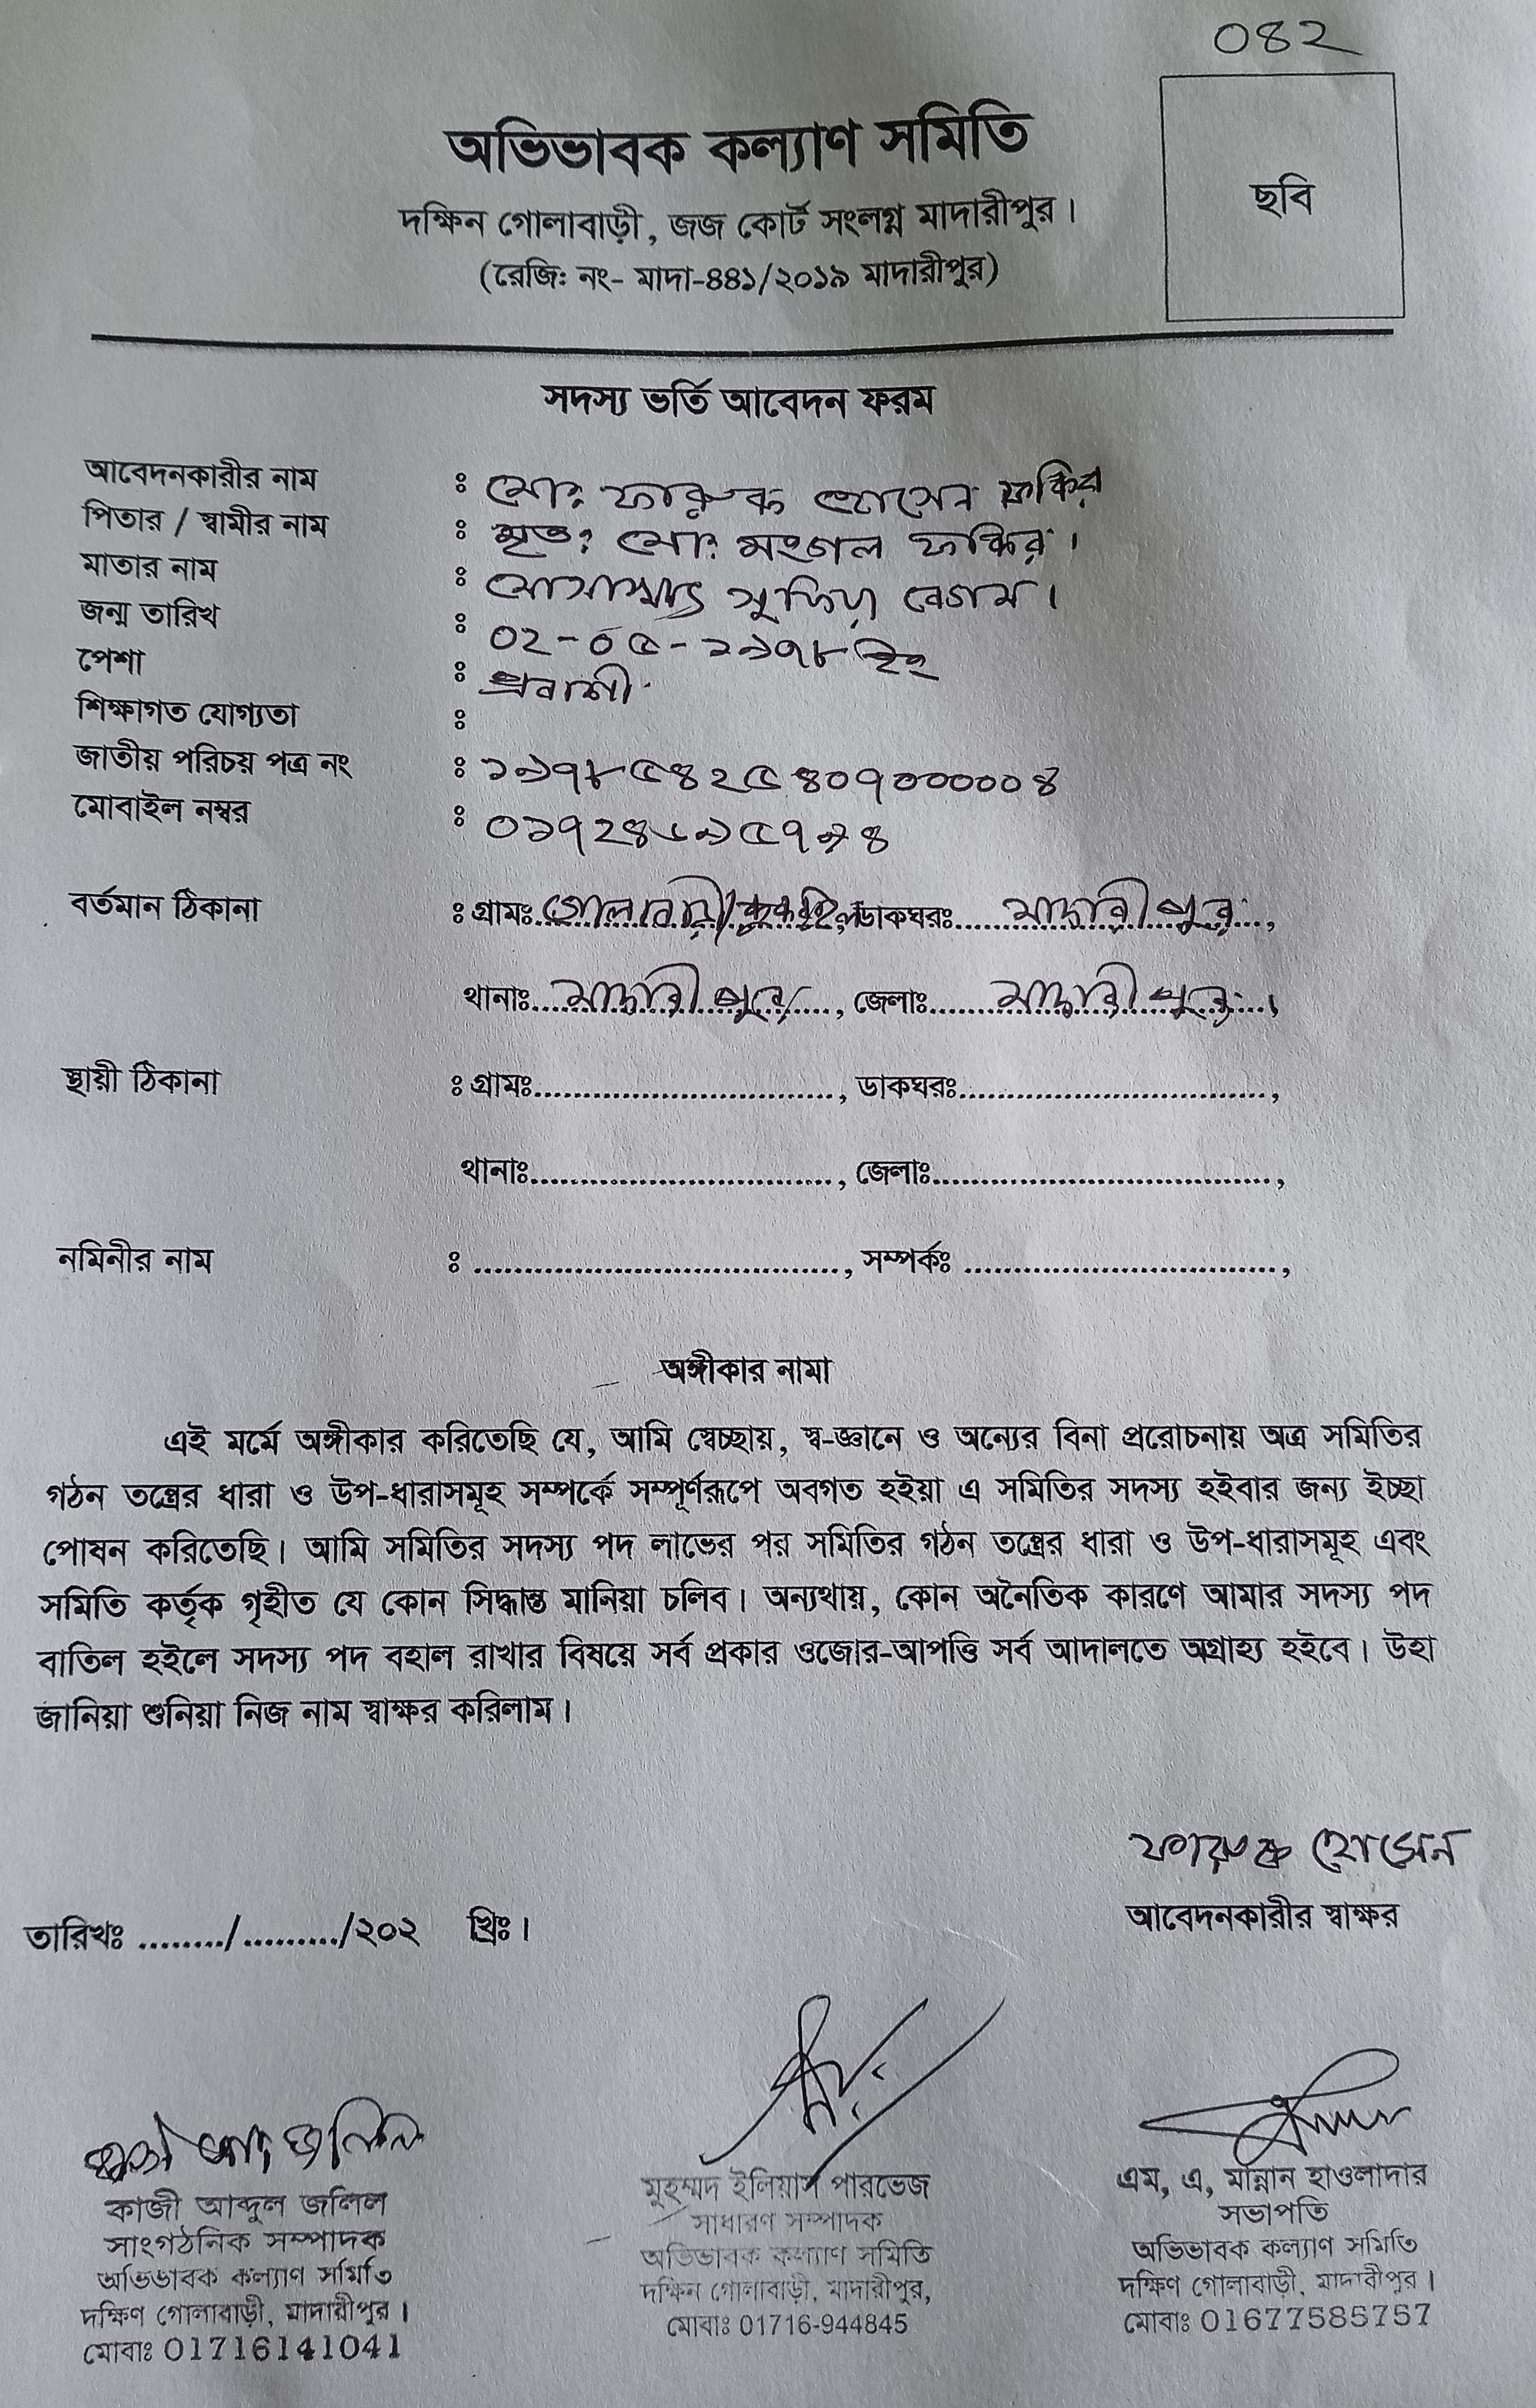 ০৪২
অভিভাবক কল্যাণ সমিতি
দক্ষিন গোলাবাড়ী, জজ কোর্ট সংলগ্ন মাদারীপুর।
(রেজিঃ নং- মাদা-৪৪১/২০১৯ মাদারীপুর)
ছবি
সদস্য ভর্তি আবেদন ফরম
আবেদনকারীর নাম ঃ মোঃ ফারুক হোসেন ফকির
পিতার / স্বামীর নাম ঃ মৃতঃ মোঃ মংগল ফকির।
মাতার নাম ঃ মোসাম্মাৎ সুফিয়া বেগম।
জন্ম তারিখ ঃ ০২-০৫-১৯৭৮ ইং
পেশা ঃ প্রবাশী
শিক্ষাগত যোগ্যতা ঃ
জাতীয় পরিচয় পত্র নং ঃ ১৯৭৮৫৪২৫৪০৭০০০০০৪
মোবাইল নম্বর ঃ
বর্তমান ঠিকানা ঃ গ্রামঃ গোলাবাড়ী/ ডাকঘরঃ মাদারীপুর,
থানাঃ মাদারীপুর, জেলাঃ মাদারীপুর।
স্থায়ী ঠিকানা ঃ গ্রামঃ.............................., ডাকঘরঃ..............................,
থানাঃ.............................., জেলাঃ..................................,
নমিনীর নাম ঃ ...................................., সম্পর্কঃ ...............................,
অঙ্গীকার নামা
এই মর্মে অঙ্গীকার করিতেছি যে, আমি স্বেচ্ছায়, স্ব-জ্ঞানে ও অন্যের বিনা প্ররোচনায় অত্র সমিতির
গঠন তন্ত্রের ধারা ও উপ-ধারাসমূহ সম্পর্কে সম্পূর্ণরূপে অবগত হইয়া এ সমিতির সদস্য হইবার জন্য ইচ্ছা
পোষন করিতেছি। আমি সমিতির সদস্য পদ লাভের পর সমিতির গঠন তন্ত্রের ধারা ও উপ-ধারাসমূহ এবং
সমিতি কর্তৃক গৃহীত যে কোন সিদ্ধান্ত মানিয়া চলিব। অন্যথায়, কোন অনৈতিক কারণে আমার সদস্য পদ
বাতিল হইলে সদস্য পদ বহাল রাখার বিষয়ে সর্ব প্রকার ওজোর-আপত্তি সর্ব আদালতে অগ্রাহ্য হইবে। উহা
জানিয়া শুনিয়া নিজ নাম স্বাক্ষর করিলাম।
ফারুক হোসেন
আবেদনকারীর স্বাক্ষর
তারিখঃ ......../........./২০২ খ্রিঃ।
কাজী আব্দুল জলিল
সাংগঠনিক সম্পাদক
অভিভাবক কল্যাণ সমিতি
দক্ষিণ গোলাবাড়ী, মাদারীপুর।
মোবাঃ 01716141041
মুহম্মদ ইলিয়াস পারভেজ
সাধারণ সম্পাদক
অভিভাবক কল্যাণ সমিতি
দক্ষিন গোলাবাড়ী, মাদারীপুর,
মোবাঃ 01716-944845
এম, এ, মান্নান হাওলাদার
সভাপতি
অভিভাবক কল্যাণ সমিতি
দক্ষিণ গোলাবাড়ী, মাদারীপুর।
মোবাঃ 01677585757